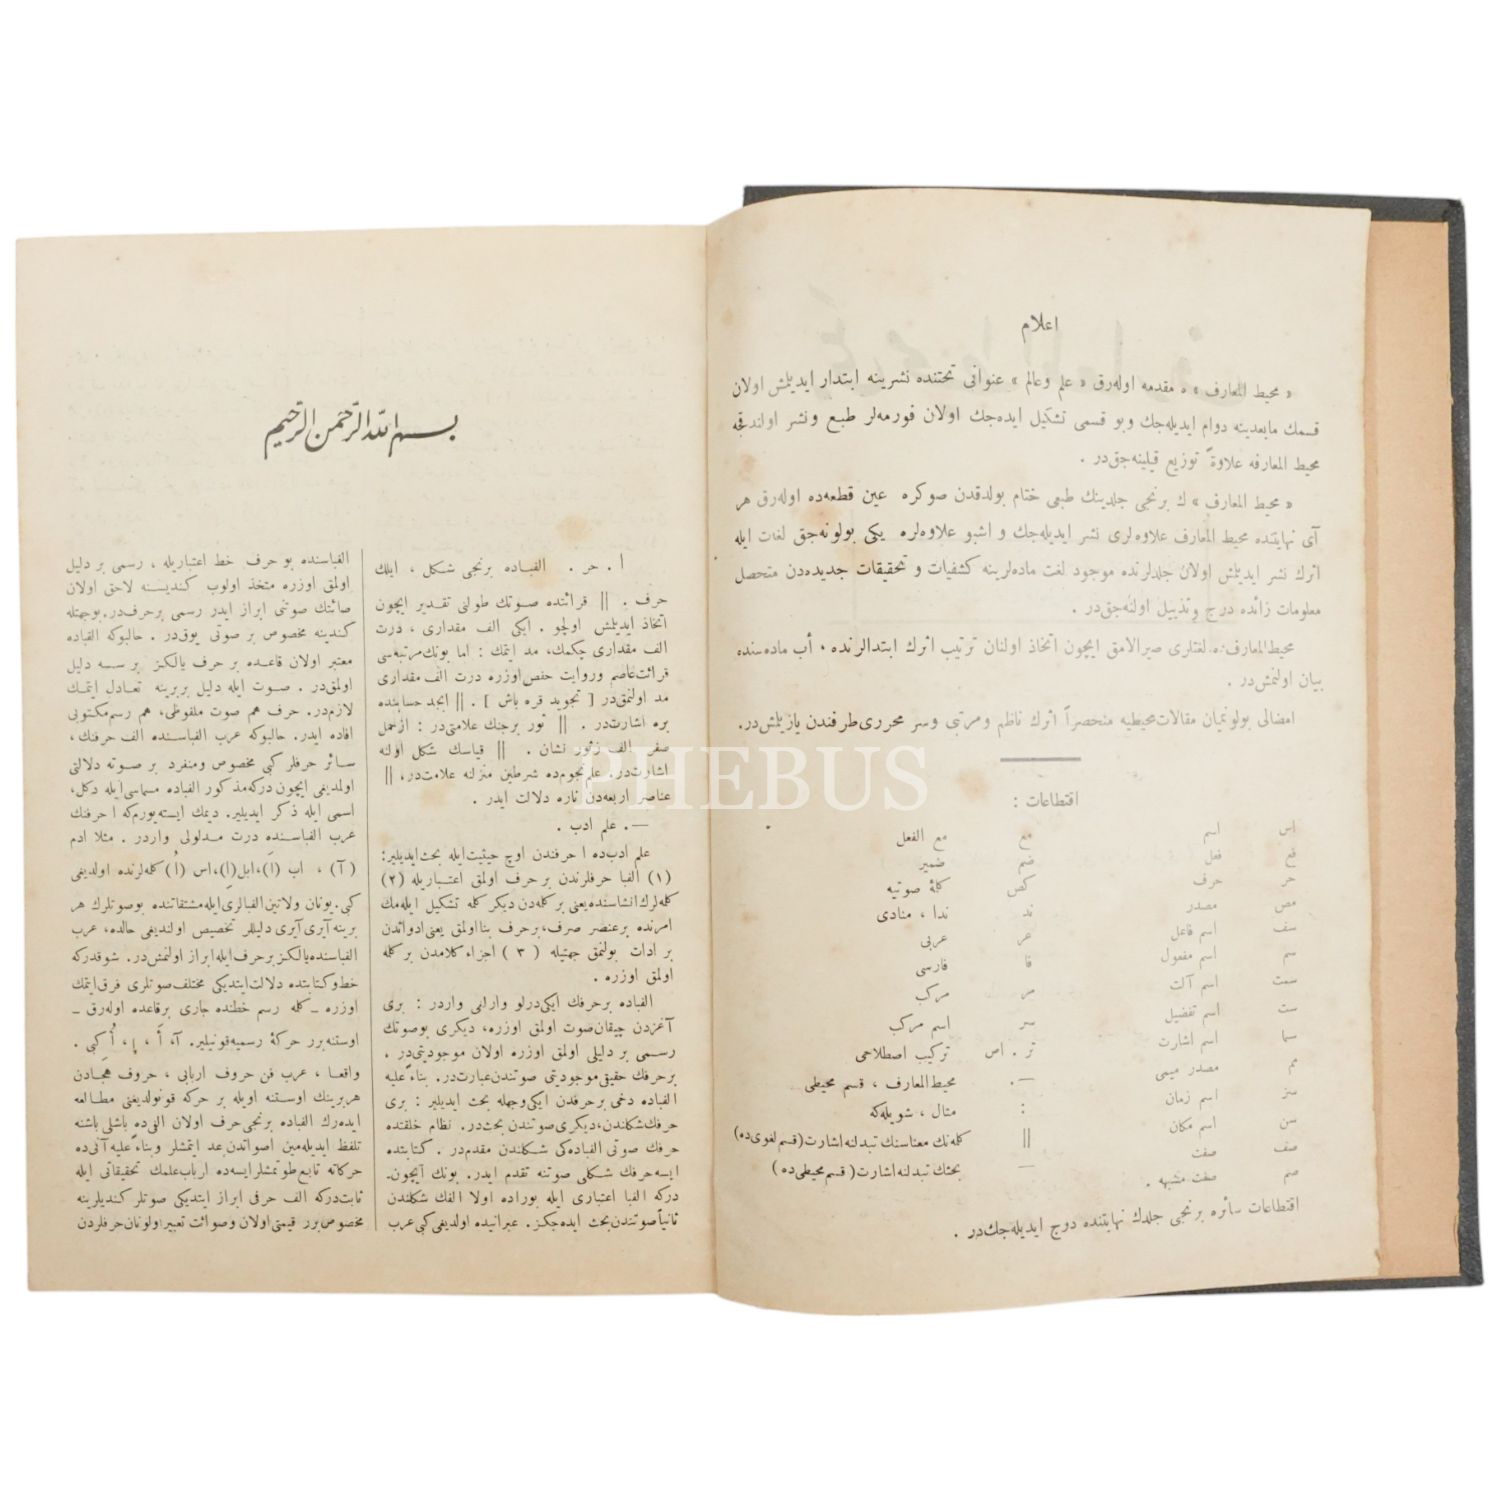 اعلام
« محيط المعارف » ه مقدمه اوله‌رق « علم وعالم » عنوانى تحتنده نشرينه ابتدار ايديلمش اولان
قسمك مابعدينه دوام ايديله‌جك وبو قسمى تشكيل ايده‌جك اولان فورمه‌لر طبع ونشر اولندقجه
محيط المعارفه علاوةً توزيع قيلينه‌جق‌در .
« محيط المعارف » ك برنجى جلدينك طبعى ختام بولدقدن صوكره عين قطعه‌ده اوله‌رق هر
آى نهايتنده محيط المعارف علاوه‌لرى نشر ايديله‌جك و اشبو علاوه‌لره يكى بولونه‌جق لغات ايله
اثرك نشر ايديلمش اولان جلدلرنده موجود لغت ماده‌لرينه كشفيات و تحقيقات جديده‌دن متحصل
معلومات زائده درج وتذييل اولنه‌جق‌در .
محيط المعارف‌ده لغتلرى صيرالامق ايچون اتخاذ اولنان ترتيب اثرك ابتدالرنده ، أب ماده‌سنده
بيان اولنمش‌در .
امضالى بولونميان مقالات محيطيه منحصراً اثرك ناظم ومرتبى وسر محررى طرفندن يازيلمش‌در.
اقتطاعات :
اس اسم مع مع الفعل
فع فعل ضم ضمير
حر حرف كص كلمۀ صوتيه
مص مصدر ند ندا ، منادى
سف اسم فاعل عر عربى
سم اسم مفعول فا فارسى
سمت اسم آلت مر مركب
ست اسم تفضيل سر اسم مركب
سما اسم اشارت تر . اص تركيب اصطلاحى
مم مصدر ميمى —. محيط المعارف ، قسم محيطى
سز اسم زمان : مثال ، شويله‌كه
سن اسم مكان || كلمه‌نك معناسنك تبدلنه اشارت (قسم لغوى‌ده)
صف صفت — بحثك تبدلنه اشارت ( قسم محيطى‌ده )
صم صفت مشبهه .
اقتطاعات سائره برنجى جلدك نهايتنده درج ايديله‌جك‌در .
بسم الله الرحمن الرحيم
ا . حر . الفباده برنجى شكل ، ايلك
حرف . || قرائتده صوتك طولنى تقدير ايچون
اتخاذ ايديلمش اولچو . ايكى الف مقدارى ، درت
الف مقدارى چكمك، مد ايتمك : اما بونك مرتبه‌سى
قرائت عاصم وروايت حفص اوزره درت الف مقدارى
مد اولنمق‌در [ تجويد قره باش ] . || ابجد حسابنده
بره اشارت‌در . || ثور برجنك علامتى‌در : ازحمل
صفر الف زثور نشان . || قياسك شكل اولنه
اشارت‌در. علم نجوم‌ده شرطين منزلنه علامت‌در، ||
عناصر اربعه‌دن ناره دلالت ايدر .
—. علم ادب .
علم ادب‌ده ا حرفندن اوچ حيثيت‌ايله بحث‌ايديلير:
(١) الفبا حرفلرندن بر حرف اولمق اعتباريله (٢)
كلمه‌لرك انشاسنده يعنى بر كلمه‌دن ديكر كلمه تشكيل ايله‌مك
امرنده بر عنصر صرف، بر حرف بنا اولمق يعنى ادواتدن
بر ادات بولنمق جهتيله ( ٣ ) اجزاء كلامدن بر كلمه
اولمق اوزره .
الفباده بر حرفك ايكى درلو وارلغى واردر : برى
آغزدن چيقان صوت اولمق اوزره، ديكرى بو صوتك
رسمى بر دليلى اولمق اوزره اولان موجوديتى‌در .
بر حرفك حقيقى موجوديتى صوتندن عبارت‌در. بناءً عليه
الفباده دخى بر حرفدن ايكى وجهله بحث ايديلير : برى
حرفك شكلندن، ديكرى صوتندن بحث‌در. نظام خلقتده
حرفك صوتى الفباده‌كى شكلندن مقدم‌در . كتابتده
ايسه حرفك شكلى صوتنه تقدم ايدر. بونك ايچون‌-
دركه الفبا اعتبارى ايله بوراده اولا الفك شكلندن
ثانياً صوتندن بحث ايده‌جكز. عبرانيده اولديغى كبى عرب
الفباسنده بو حرف خط اعتباريله ، رسمى بر دليل
اولمق اوزره متخذ اولوب كنديسنه لاحق اولان
صائتك صوتنى ابراز ايدر رسمى بر حرف‌در. بوجهتله
كندينه مخصوص بر صوتى يوق‌در . حالبوكه الفباده
معتبر اولان قاعده بر حرف يالكز بر سسه دليل
اولمق‌در . صوت ايله دليل بربرينه تعادل ايتمك
لازم‌در. حرف هم صوت ملفوظى، هم رسم مكتوبى
افاده ايدر. حالبوكه عرب الفباسنده الف حرفنك،
سائر حرفلر كبى مخصوص ومنفرد بر صوته دلالتى
اولمديغى ايچون دركه مذكور الفباده مسماسى ايله دكل،
اسمى ايله ذكر ايديلير. ديمك ايسته‌يورم كه ا حرفنك
عرب الفباسنده درت مدلولى واردر . مثلا ادم
(آ) ، اب (اَ)، ابل(اِ)، اس (اُ) كلمه‌لرنده اولديغى
كبى. يونان ولاتين الفبالرى ايله مشتقاتنده بو صوتلرك هر
برينه آيرى آيرى دليللر تخصيص اولنديغى حالده، عرب
الفباسنده يالكز بر حرف ايله ابراز اولنمش‌در. شو قدركه
خط وكتابتده دلالت ايتديكى مختلف صوتلرى فرق ايتمك
اوزره — كلمه رسم خطنده جارى بر قاعده اوله‌رق —
اوستنه برر حركۀ رسميه قونيلير. آ، أَ ، إِ ، أُ كبى .
واقعا ، عرب فن حروف اربابى ، حروف هجادن
هر برينك اوستنه اويله بر حركه قونولديغنى مطالعه
ايده‌رك الفباده برنجى حرف اولان الفى‌ده باشلى باشنه
تلفظ ايديله‌مين اصواتدن عد ايتمشلر وبناءً عليه آنى‌ده
حركاته تابع طوتمشلر ايسه‌ده ارباب علمك تحقيقاتى ايله
ثابت‌دركه الف حرفى ابراز ايتديكى صوتلر كنديلرينه
مخصوص برر قيمتى اولان وصوائت تعبير اولونان حرفلردن
PHEBUS